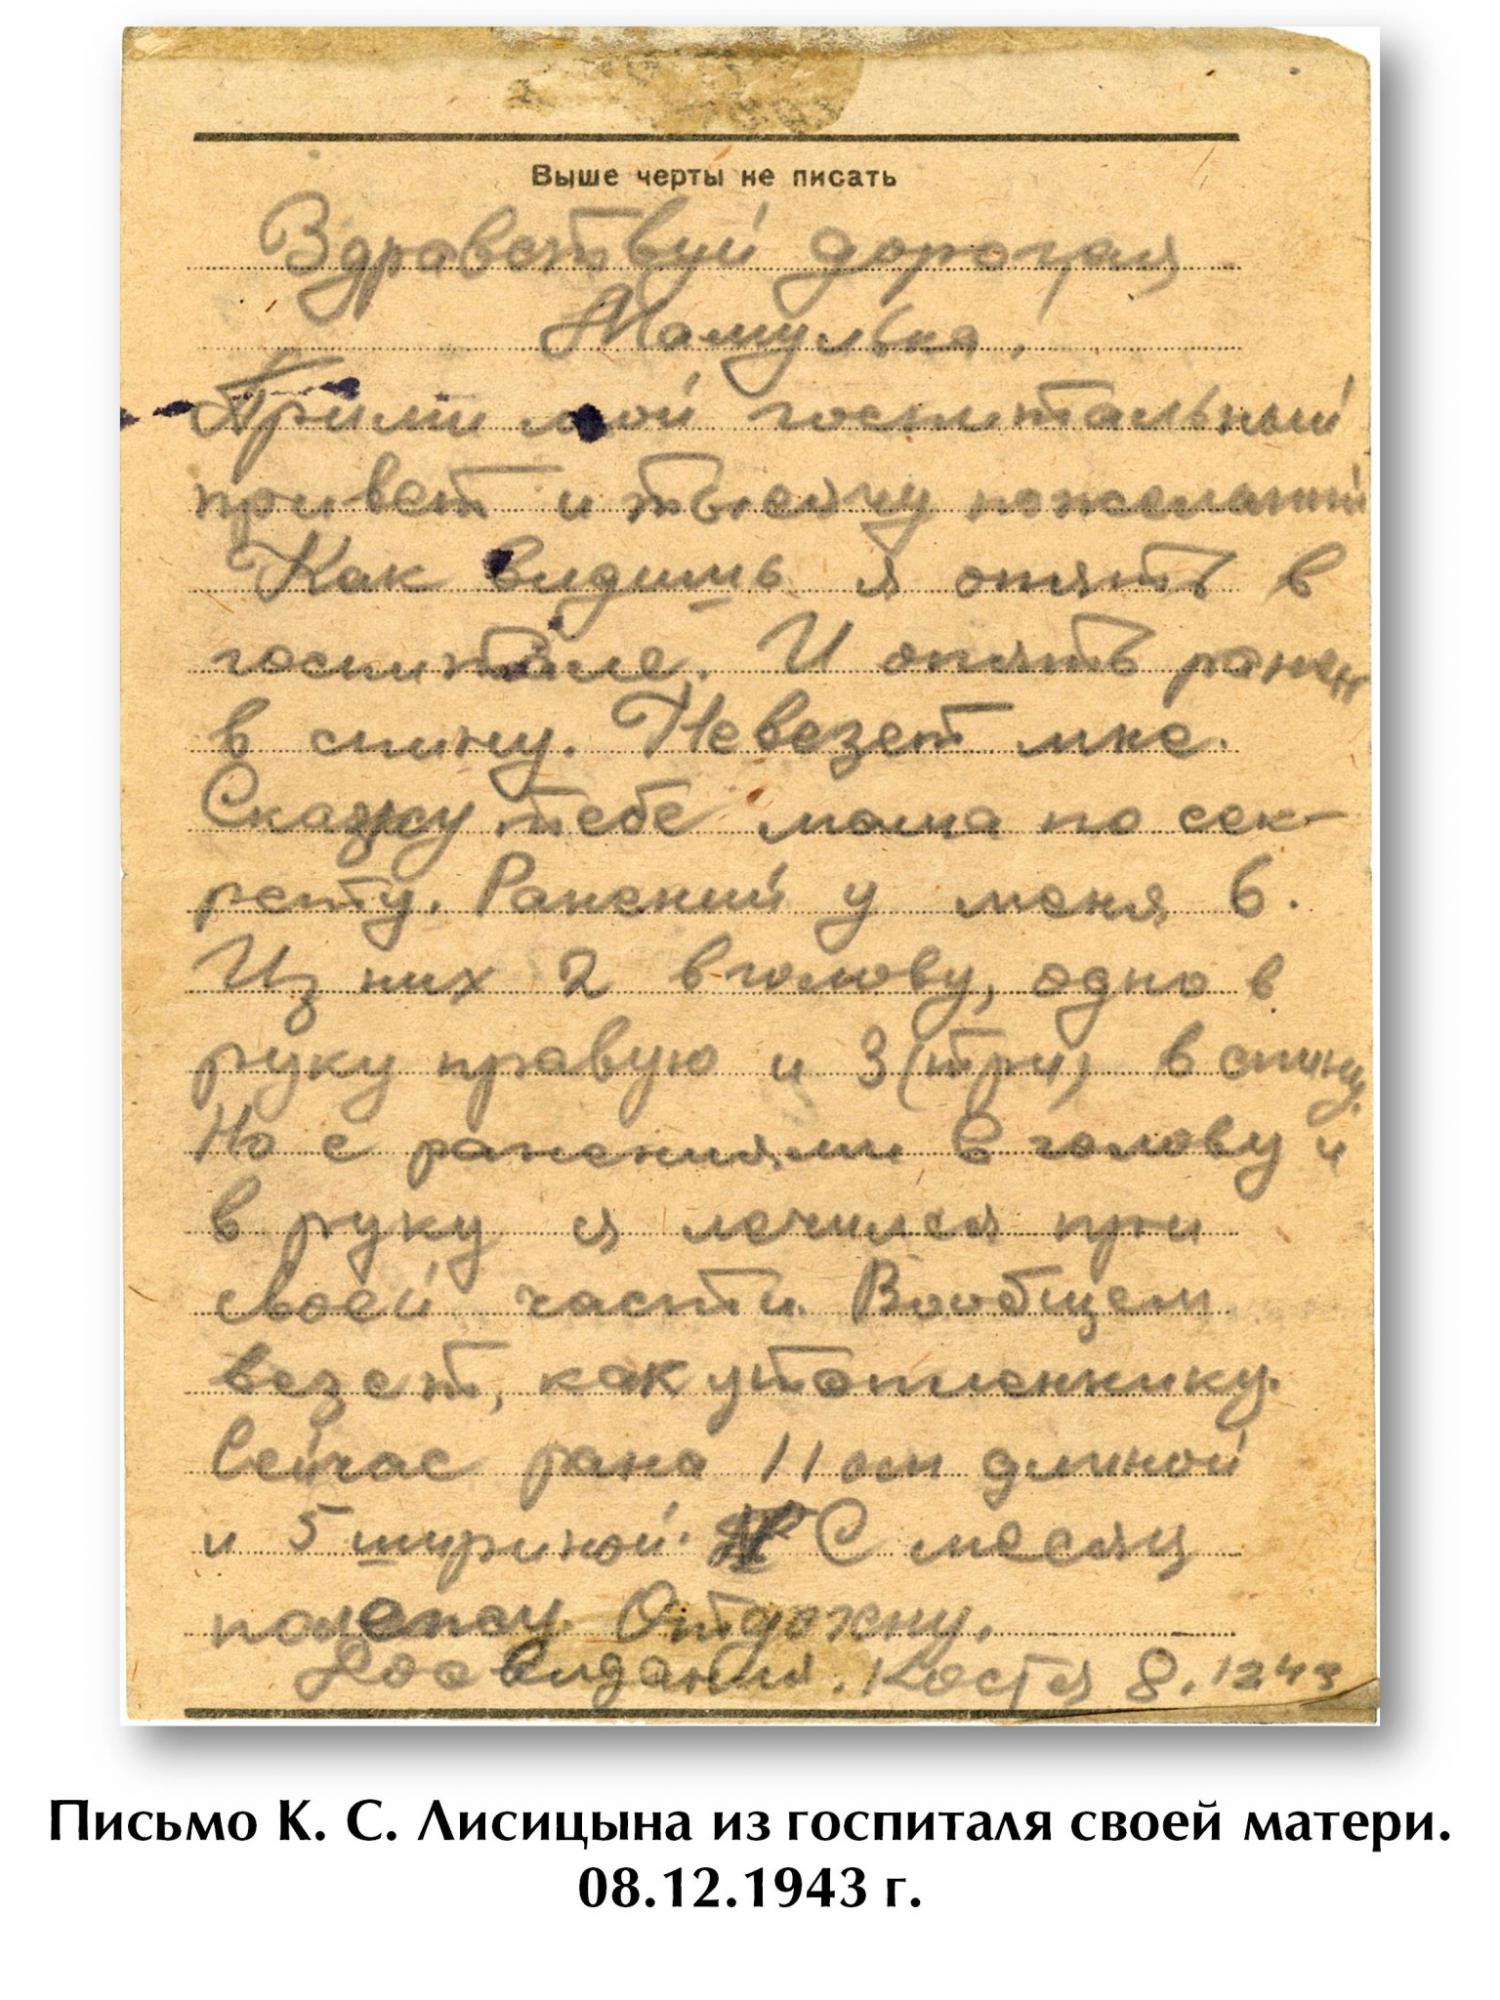 Выше черты не писать
Здравствуй дорогая
Мамулька.
Прими мой госпитальный
привет и тысячу пожеланий
Как видишь я опять в
госпитале. И опять ранен
в спину. Невезет мне.
Скажу тебе мама по сек-
рету. Ранений у меня 6.
Из них 2 в голову, одно в
руку правую и 3 (три) в спину.
Но с ранениями в голову и
в руку я лечился при
своей части. Вообщем
везет, как утопленнику.
Сейчас рана 11 см длиной
и 5 шириной. С месяц
полежу. Отдохну.
Досвидания. Костя 8.1243
Письмо К. С. Лисицына из госпиталя своей матери.
08.12.1943 г.